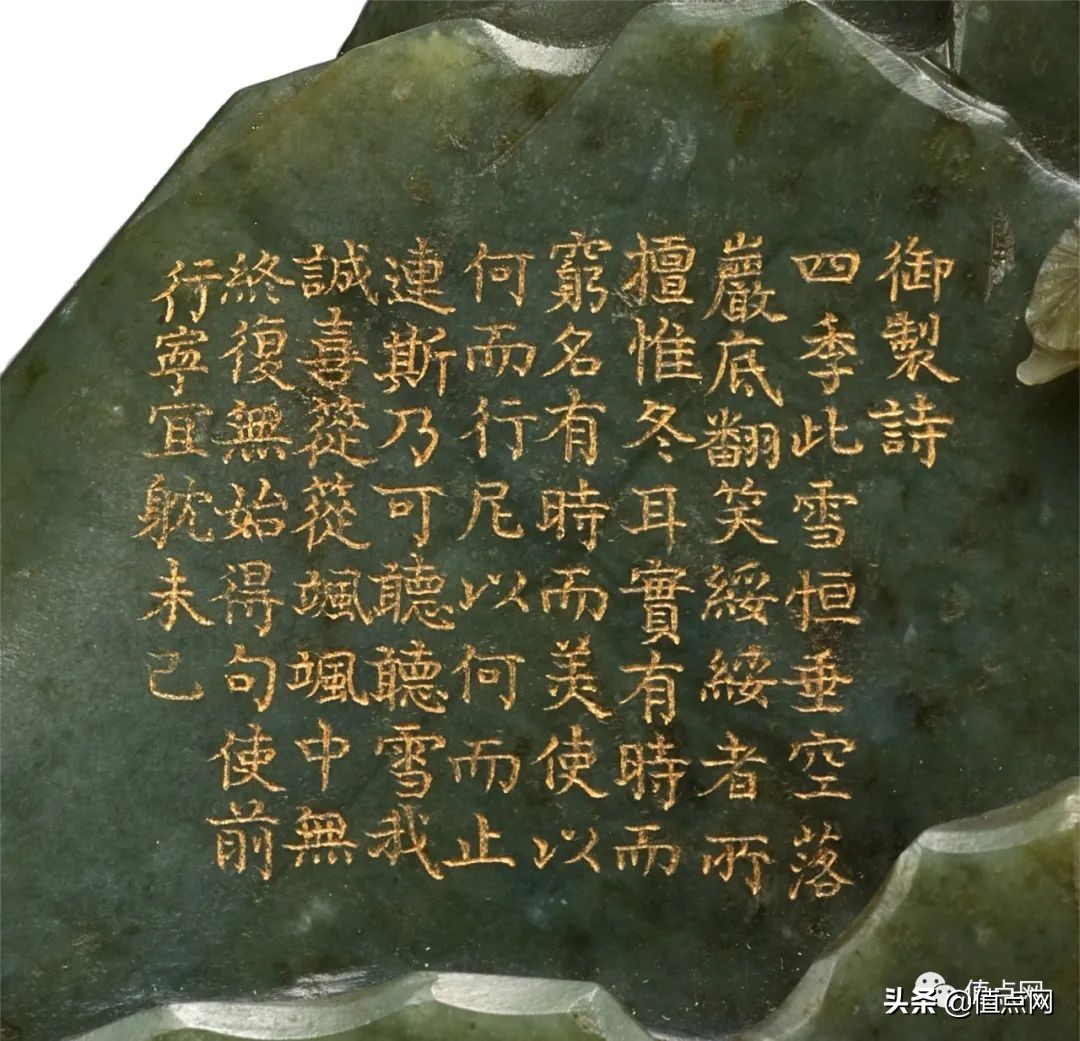 御製詩
四季此雪恒垂空落
巖底翻笑綏綏者所
擅惟冬耳實有時而
窮名有時而美使以
何而行尼以何而止
連斯乃可聽聽雪我
誠喜蓯蓯颯颯中無
終復無始得句使前
行寧宜躭未已
值点网
头条@值点网